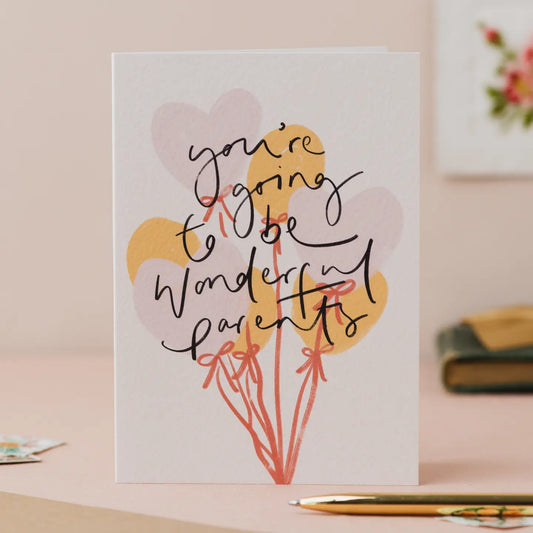 you're
going
to be
wonderful
parents